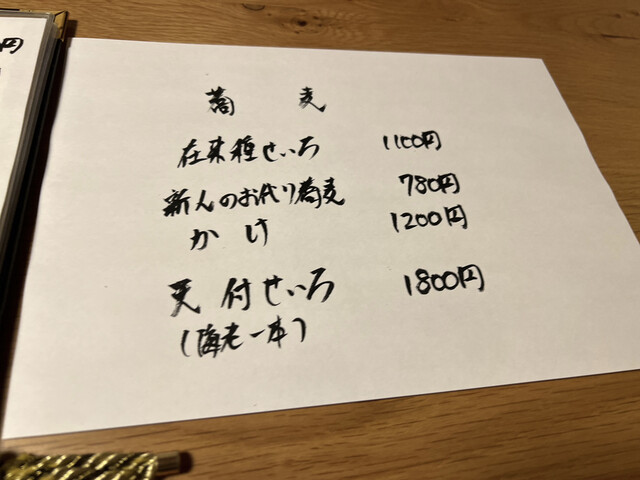 蕎麦
在来種せいろ 1100円
新人のお代り蕎麦 780円
かけ 1200円
天付せいろ 1800円
(海老一本)
円